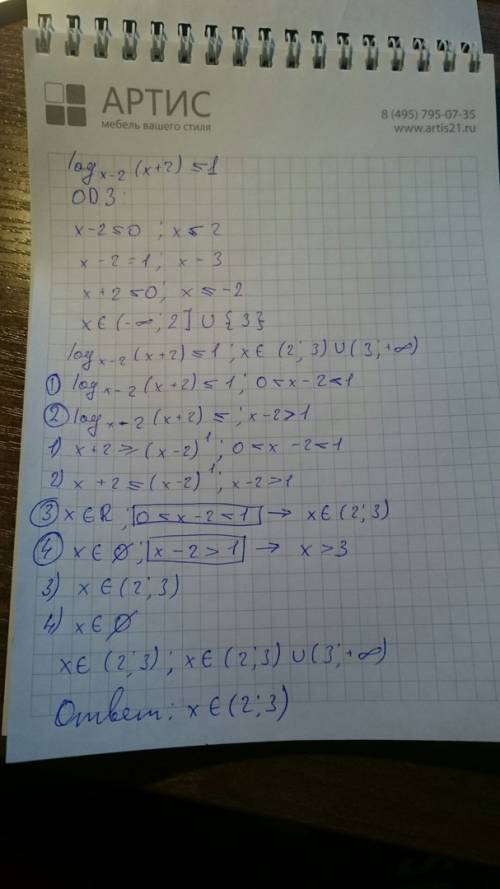 АРТИС
мебель вашего стиля
8 (495) 795-07-35
www.artis21.ru
log x-2 (x+2) ≤ 1
ОДЗ:
x-2≤0 ; x≤2
x-2=1; x-3
x+2≤0; x≤-2
x∈(-∞; 2] ∪ {3}
log x-2 (x+2) ≤ 1; x∈ (2; 3) ∪ (3; +∞)
① log x-2 (x+2) ≤ 1; 0<x-2<1
② log x-2 (x+2) ≤ ; x-2>1
1) x+2 ≥ (x-2)¹; 0<x-2<1
2) x+2 ≤ (x-2)¹; x-2>1
③ x∈R; 0<x-2<1 → x∈(2; 3)
④ x∈∅; x-2>1 → x>3
3) x∈(2; 3)
4) x∈∅
x∈ (2; 3); x∈ (2; 3) ∪ (3; +∞)
Ответ: x∈(2; 3)